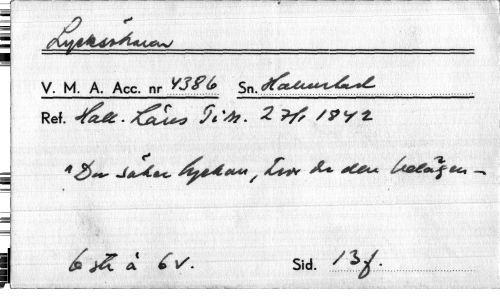 Lycksökaren
V. M. A. Acc. nr 4386 Sn. Halmstad
Ref. Hall. Läns Tidn. 27/1 1842
"Du söker lyckan, hvar är den belägen –
6 str à 6 v. Sid. 13 f.